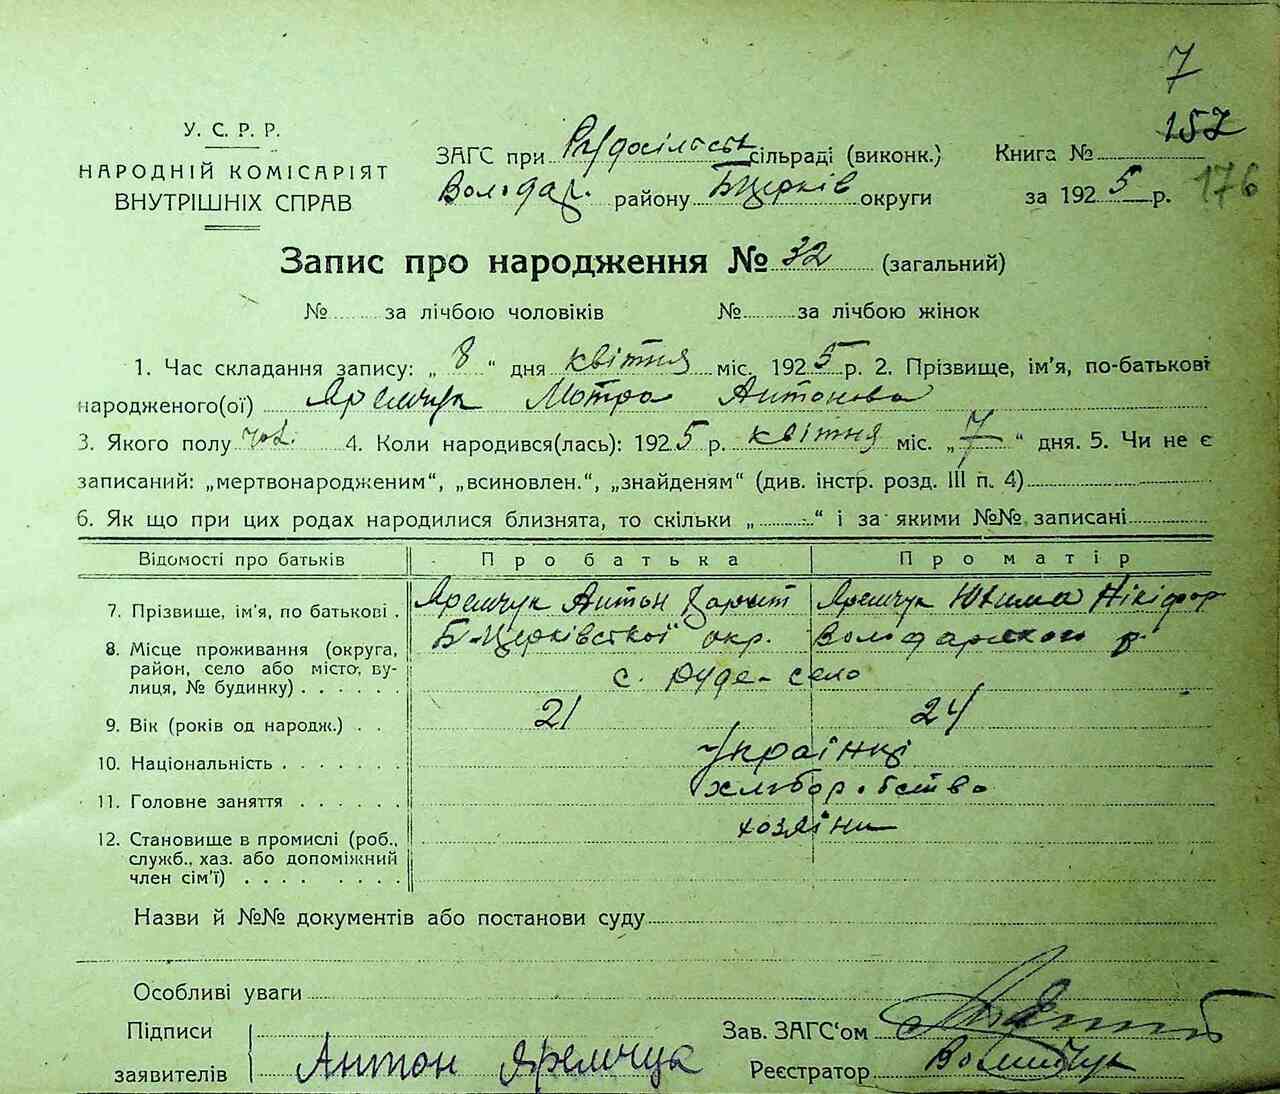 7
157
176
У. С. Р. Р.
НАРОДНІЙ КОМІСАРІЯТ
ВНУТРІШНІХ СПРАВ
ЗАГС при Рудосільськ сільраді (виконк.) Книга №
Володар. району Б Церків округи за 1925 р.
Запис про народження № 32 (загальний)
№ за лічбою чоловіків № за лічбою жінок
1. Час складання запису: „ 8 “ дня квітня міс. 1925 р. 2. Прізвище, ім'я, по-батькові
народженого(ої) Яремчук Мотра Антонова
3. Якого полу 4. Коли народився(лась): 1925 р. квітня міс. „ 7 “ дня. 5. Чи не є
записаний: „мертвонародженим“, „всиновлен.“, „знайденям“ (див. інстр. розд. III п. 4)
6. Як що при цих родах народилися близнята, то скільки „ “ і за якими №№ записані
Відомості про батьків Про батька Про матір
7. Прізвище, ім'я, по батькові . Яремчук Антон Яремчук Юхима Нікіфор
8. Місце проживання (округа, Б-Церківської окр. Володарського р
район, село або місто, ву-
лиця, № будинку) . . . . . . с. Руде-село
9. Вік (років од народж.) . . 21 24
10. Національність . . . . . . . українці
11. Головне заняття . . . . . . хліборобство
12. Становище в промислі (роб., хозяіни
служб., хаз. або допоміжний
член сім'ї) . . . . . . . .
Назви й №№ документів або постанови суду
Особливі уваги
Підписи Зав. ЗАГС'ом
заявителів Антон Яремчук Реєстратор